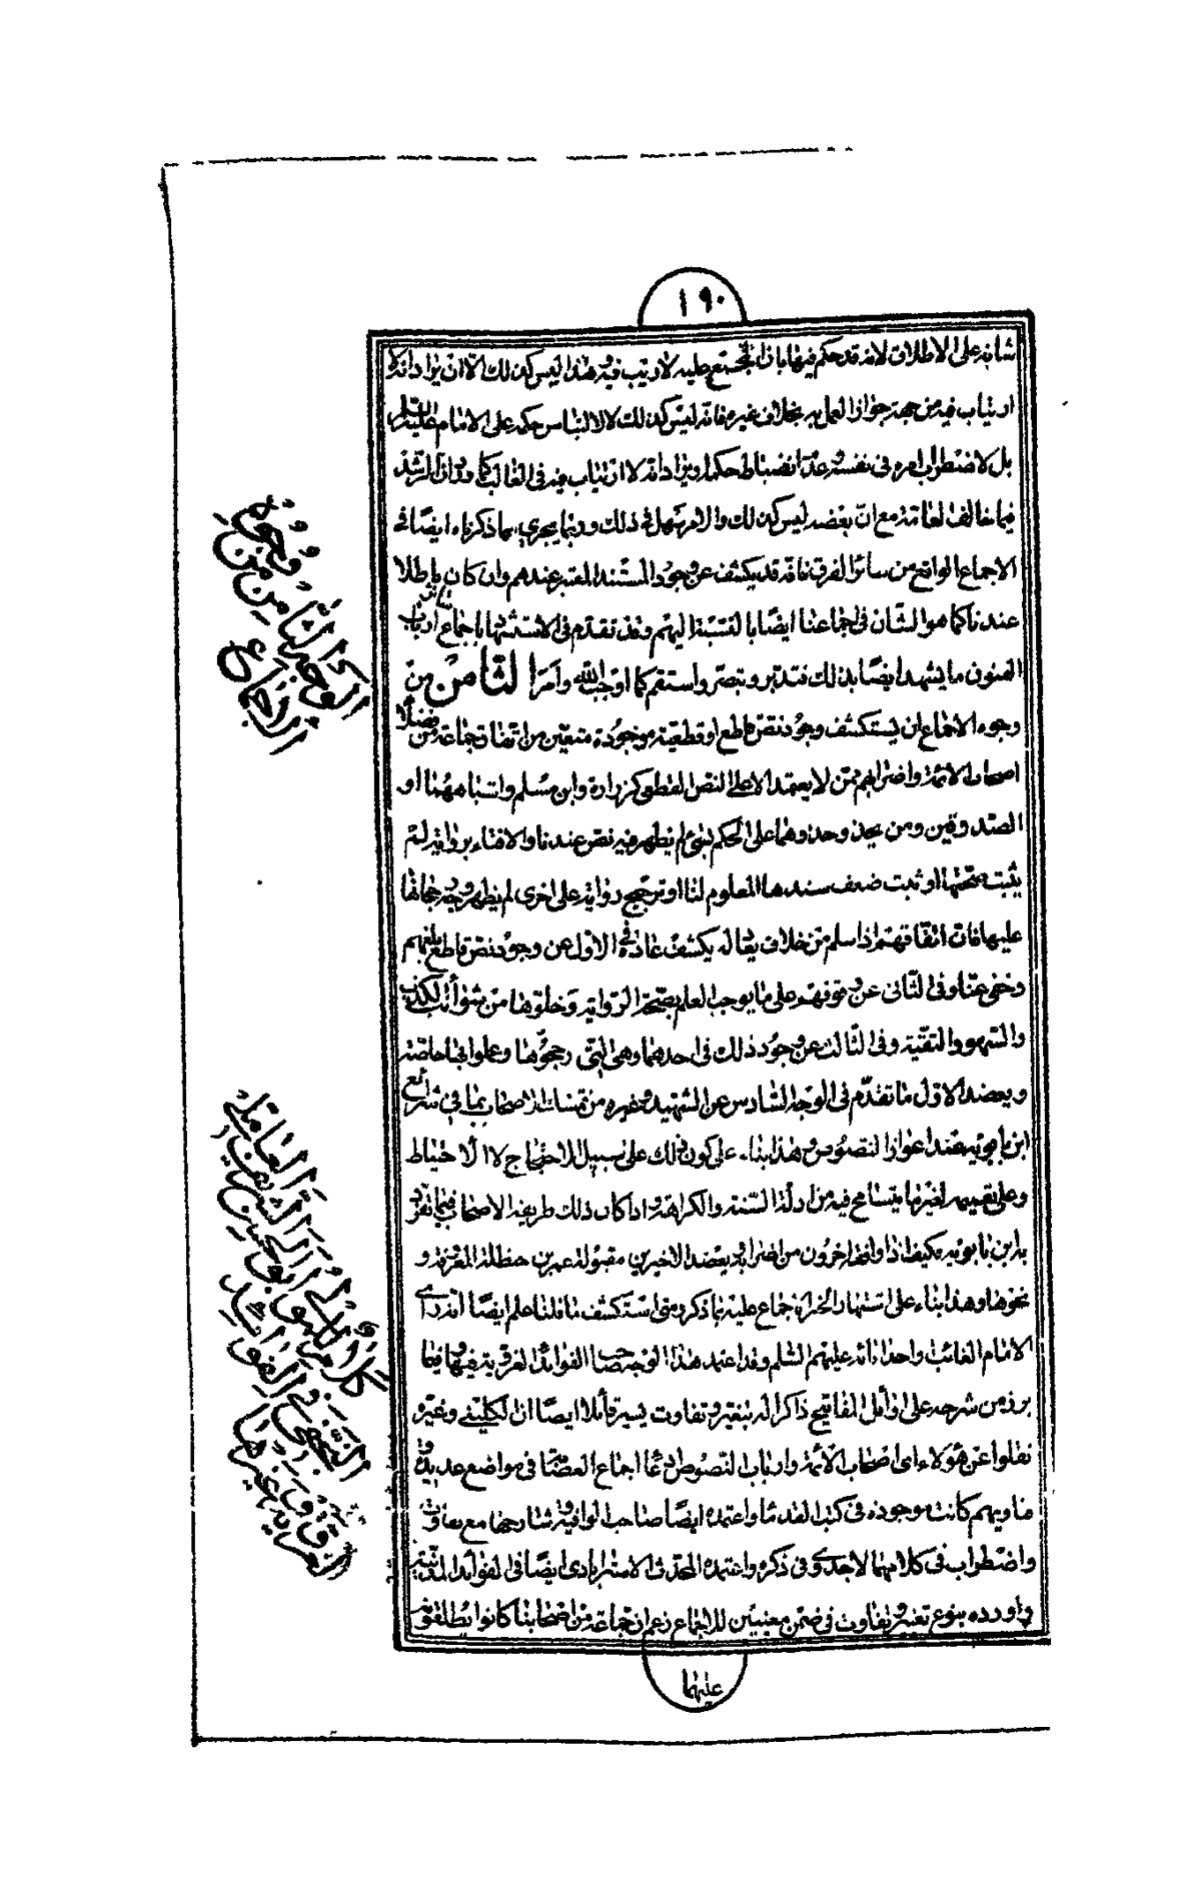 ١٩٠
شانه على الاطلاق لانه قد حكم فيها بان المجتمع عليه لا ريب فيه وهذا ليس كذلك الا ان يراد انه لا
ارتياب فيه من جهة جواز العمل به بخلاف غيره فانه ليس كذلك لا لالتباس حكمه على الامام عليه السلم
بل لاضطراب امره في نفسه وعدم انضباط حكمه او يراد انه لا ارتياب فيه في الغالب كما ورد ان الرشد
فيما خالف العامة مع ان بعضه ليس كذلك والامر سهل في ذلك وربما يجري ما ذكرناه ايضا في
الاجماع الواقع من سائر الفرق فانه قد يكشف عن وجود المستند المعتبر عندهم وان كان باطلا
عندنا كما هو الشان في اجماعنا ايضا بالنسبة اليهم وقد تقدم في الاستشهاد باجماع ارباب
الفنون ما يشهد ايضا بذلك فتدبر وتبصر واستقم كما اوجب الله وامر الثامن من
وجوه الاجماع ان يستكشف وجود نص قاطع او قطعية موجودة متعين من اتفاق جماعة من فضلاء
اصحاب الائمة واضرابهم ممن لا يعتمد الا على النص القطعي كزرارة وابن مسلم واشباههما او
الصدوقين ومن يحذو حذوهما على الحكم بشئ لم يظهر فيه نص عندنا والافتاء برواية لم
يثبت صحتها او ثبت ضعف سندها المعلوم لنا او ترجيح رواية على اخرى لم يظهر وجه رجحانها
عليها فان اتفاقهم اذا سلم من خلاف يعادله يكشف عادة في الاول عن وجود نص قاطع بلغهم
وخفي عنا وفي الثاني عن وقوفهم على ما يوجب العلم بصحة الرواية وخلوها من شوائب الكذب
والسهو والتقية وفي الثالث عن وجود ذلك في احدهما وهي التي رجحوها وعملوا بها خاصة
ويعضد الاول ما تقدم في الوجه السادس عن الشهيد وغيره من تمسك الاصحاب بما في شرائع
ابن بابويه عند اعواز النصوص وهذا بناء على كون ذلك على سبيل الاحتجاج لا الاحتياط
وعلى تعميمه لغير ما يتسامح فيه من ادلة السنة والكراهة واذا كان ذلك طريقة الاصحاب فيما تفرد
به ابن بابويه فكيف اذا وافقه اخرون من اضرابه ويعضد الاخيرين مقبولة عمر بن حنظلة المعروفة و
نحوها وهذا بناء على اشتهار الخبر اجماع عليه بما ذكر ومتى استكشف ما قلنا علم ايضا انه راى
الامام الغائب واحد ابائه عليهم السلم وقد اعتمد هذا الوجه صاحب الفوائد الغروية فيها وفيما
برز من شرحه على اوائل المفاتيح ذاكرا له بتغيير وتفاوت يسير قائلا ايضا ان الكليني وغيره
نقلوا عن هؤلاء اى اصحاب الائمة وارباب النصوص اجماع العصابة في مواضع عديدة
فتاويهم كانت موجودة في كتب القدماء واعتمده ايضا صاحب الوافية وشارحها مع تفاوت
واضطراب في كلامهما لا جدوى في ذكره واعتمده المحدث الاسترابادي ايضا في الفوائد المدنية
واورده بنوع تغيير وتفاوت في ضمن معنيين للاجماع زعم ان جماعة من اصحابنا كانوا يطلقونه
عليهما
الوجه الثامن من وجوه
الاجماع
كلام المولى ابو الحسن الشريف العاملي
النجفي في الفوائد
الغروية وغيرها